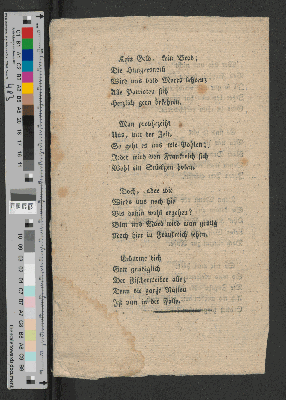 Kein Geld, kein Brod;
Die Hungersnoth
Wird uns bald Mores lehren;
Alle Patrioten sich
Herzlich gern bekehren.
Man prophezeiht
Uns, mit der Zeit,
So geht es uns wie Pohlen;
Jeder wird von Frankreich sich
Wohl ein Stückgen holen.
Doch, aber wie
Wirds uns noch hie
Bis dahin wohl ergehen?
Blut und Mord wird man genug
Noch hier in Frankreich sehen.
Erbarme dich
Gott gnädiglich
Der Fischerweiber aller,
Denn die ganze Nation
Ist nun in der Falle.